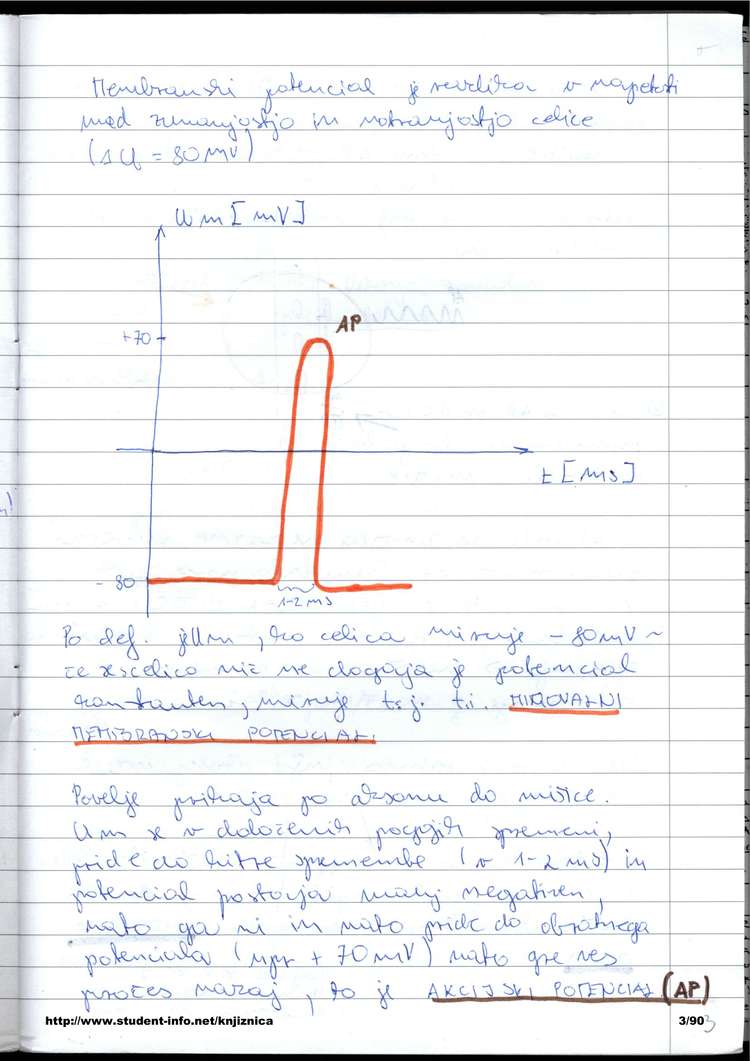 Membranski potencial je razlika v napetosti
med zunanjostjo in notranjostjo celice
(ΔU = 80 mV)
Um [mV]
+70
AP
t [ms]
- 80
1-2 ms
Po def. je Um, ko celica miruje - 80 mV ~
če s celico nič ne dogaja je potencial
konstanten, miruje t.j. t.i. MIROVALNI
MEMBRANSKI POTENCIAL.
Povelje prihaja po aksonu do mišice.
Um se v določenih pogojih spremeni,
pride do hitre spremembe (v 1-2 ms) in
potencial postaja manj negativen,
nato ga ni in nato pride do obratnega
potenciala (npr + 70 mV) nato gre ves
proces nazaj, to je AKCIJSKI POTENCIAL (AP)
http://www.student-info.net/knjiznica
3/90
3